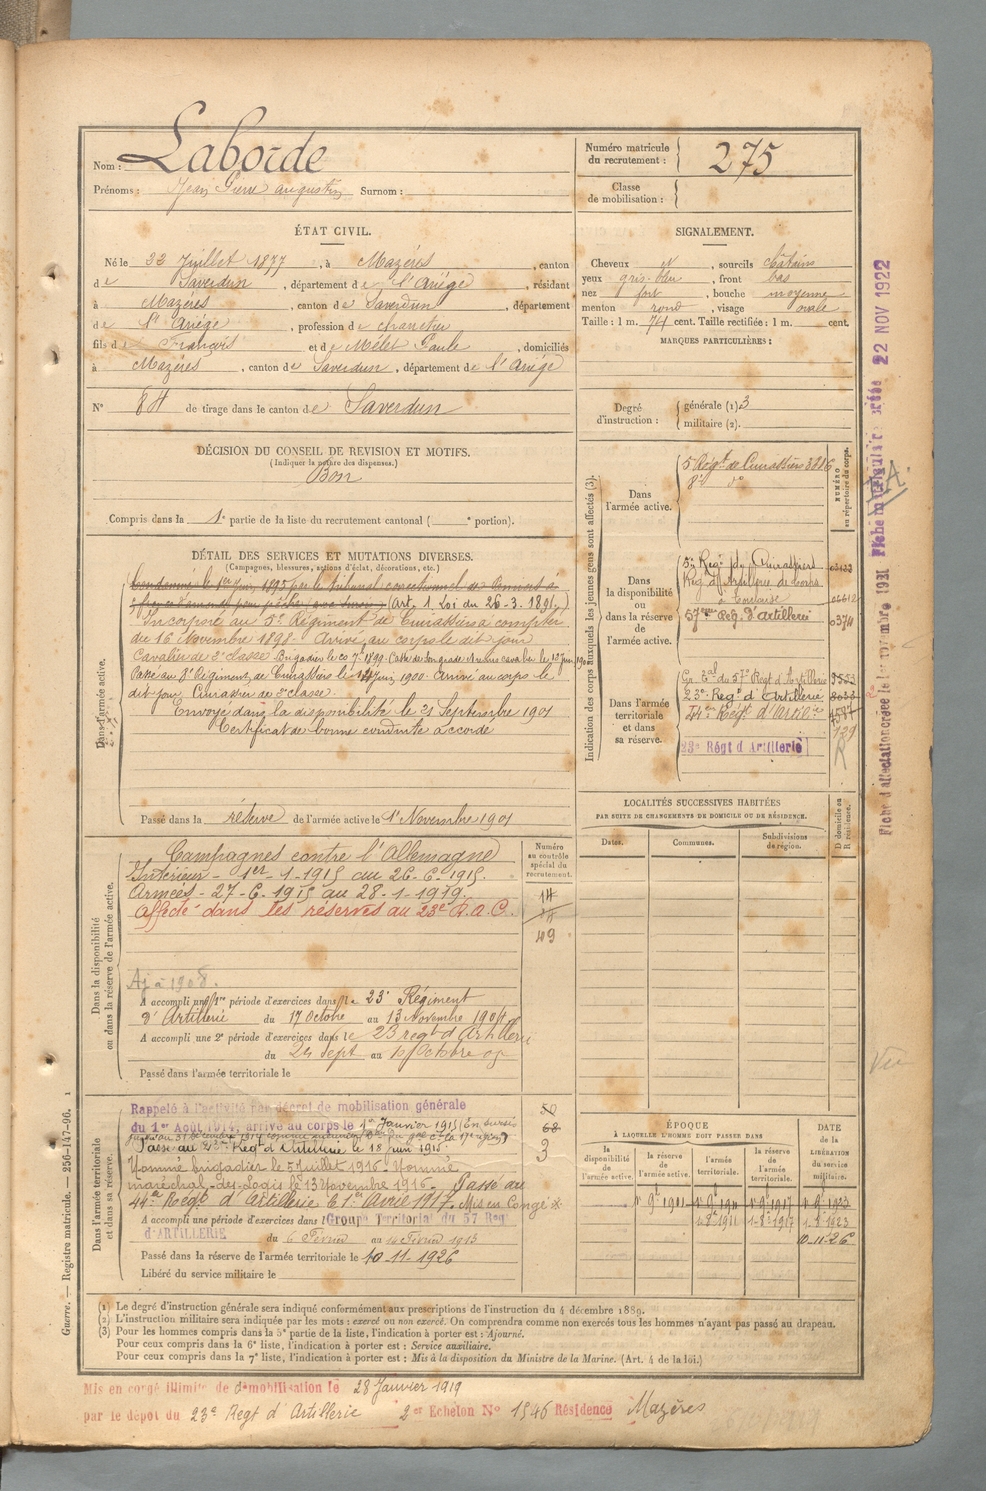 Nom : Laborde
Prénoms : Jean Pierre Augustin Surnom :
Numéro matricule du recrutement : 275
Classe de mobilisation :
ÉTAT CIVIL.
Né le 22 Juillet 1877, à Mazères, canton
de Saverdun, département de l'Ariège, résidant
à Mazères, canton de Saverdun, département
de l'Ariège, profession de
fils de François et de Mélet Paule, domiciliés
à Mazères, canton de Saverdun, département de l'Ariège
N° 84 de tirage dans le canton de Saverdun
SIGNALEMENT.
Cheveux , sourcils châtains
yeux gris-bleu, front bas
nez fort, bouche moyenne
menton rond, visage ovale
Taille : 1 m. 74 cent. Taille rectifiée : 1 m. cent.
MARQUES PARTICULIÈRES :
Degré d'instruction : générale (1) 3
militaire (2).
DÉCISION DU CONSEIL DE REVISION ET MOTIFS.
(Indiquer la nature des dispenses.)
Bon
Compris dans la 1e partie de la liste du recrutement cantonal ( e portion).
DÉTAIL DES SERVICES ET MUTATIONS DIVERSES.
(Campagnes, blessures, actions d'éclat, décorations, etc.)
Dans l'armée active.
Condamné le 1er 1895 par le tribunal correctionnel de
(Art. 1 Loi du 26-3-1891.)
Incorporé au 5e Régiment de Cuirassiers à compter
du 16 Novembre 1898. Arrivé au corps le dit jour
Cavalier de 2e classe Brigadier le 1899.
Passé au 8e Régiment de Cuirassiers le Juin 1900. Arrivé au corps le
dit jour. Cuirassier de 2e classe.
Envoyé dans la disponibilité le 21 Septembre 1901
Certificat de bonne conduite accordé
Passé dans la réserve de l'armée active le 1er Novembre 1901
Indication des corps auxquels les jeunes gens sont affectés (3).
NUMÉRO au répertoire du corps.
Dans l'armée active.
5e Régt de Cuirassiers 3286
8e do
Dans la disponibilité ou dans la réserve de l'armée active.
5e Régt de Cuirassiers
Régt d'Artillerie de
à Toulouse
57eme Rég. d'Artillerie 0374
Dans l'armée territoriale et dans sa réserve.
Gr. Tal du 57e Régt d'Artillerie
23e Régt d'Artillerie
Régt d'Artie
23e Régt d'Artillerie
R
LOCALITÉS SUCCESSIVES HABITÉES
PAR SUITE DE CHANGEMENTS DE DOMICILE OU DE RÉSIDENCE.
D domicile ou R résidence.
Dates. Communes. Subdivisions de région.
Dans la disponibilité ou dans la réserve de l'armée active.
Campagnes contre l'Allemagne
Intérieur - 1er-1-1915 au 26-6-1915.
Armées - 27-6-1915 au 28-1-1919.
Affecté dans les réserves au 23e R.A.C.
Numéro au contrôle spécial du recrutement.
14
14
49
Aj à 1908.
A accompli une 1re période d'exercices dans le 23e Régiment
d'Artillerie du 17 Octobre au 13 Novembre 1904
A accompli une 2e période d'exercices dans le 23 regt d'Artillerie
du 24 Sept au 10 Octobre 09
Passé dans l'armée territoriale le
Dans l'armée territoriale et dans sa réserve.
Rappelé à l'activité par décret de mobilisation générale
du 1er Août 1914, arrivé au corps le 1er Janvier 1915 (En sursis
jusqu'au 31 Décembre 1914
Passé au 23e Regt d'Artillerie le 18 juin 1915
Nommé brigadier le 5 Juillet 1916. Nommé
maréchal-des-Logis le 13 Novembre 1916. Passé au
44e Regt d'Artillerie le 1er Avril 1917. Mis en Congé
50
68
3
A accompli une période d'exercices dans l Groupe Territorial du 57 Regt
d'ARTILLERIE du 6 Février au Février 1913
Passé dans la réserve de l'armée territoriale le 10-11-1926
Libéré du service militaire le
ÉPOQUE
À LAQUELLE L'HOMME DOIT PASSER DANS
la disponibilité de l'armée active. la réserve de l'armée active. l'armée territoriale. la réserve de l'armée territoriale.
DATE de la LIBÉRATION du service militaire.
1er 9bre 1901 1er 9bre 1911 1er 9bre 1917 1er 9bre 1923
1-8bre 1911 1-8bre 1917 1-8bre 1923
10-11-26
(1) Le degré d'instruction générale sera indiqué conformément aux prescriptions de l'instruction du 4 décembre 1889.
(2) L'instruction militaire sera indiquée par les mots : exercé ou non exercé. On comprendra comme non exercés tous les hommes n'ayant pas passé au drapeau.
(3) Pour les hommes compris dans la 5e partie de la liste, l'indication à porter est : Ajourné.
Pour ceux compris dans la 6e liste, l'indication à porter est : Service auxiliaire.
Pour ceux compris dans la 7e liste, l'indication à porter est : Mis à la disposition du Ministre de la Marine. (Art. 4 de la loi.)
Mis en congé illimité de démobilisation le 28 Janvier 1919
par le dépôt du 23e Regt d'Artillerie 2e Echelon N° 1546 Résidence Mazères
Guerre. — Registre matricule. — 256-147-96. 1
Fiche matriculaire créée 22 NOV 1922
Fiche d'affectation créée le 1er novembre 1931
Vu